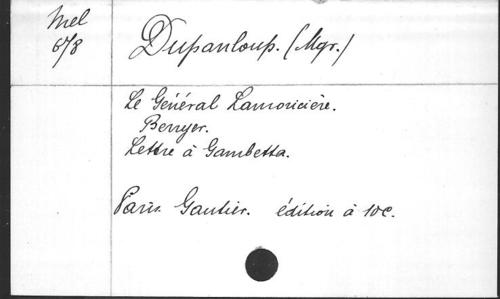 Mel
678
Dupanloup. (Mgr.)
Le Général Lamoricière.
Berryer.
Lettre à Gambetta.
Paris. Gautier. édition à 10c.